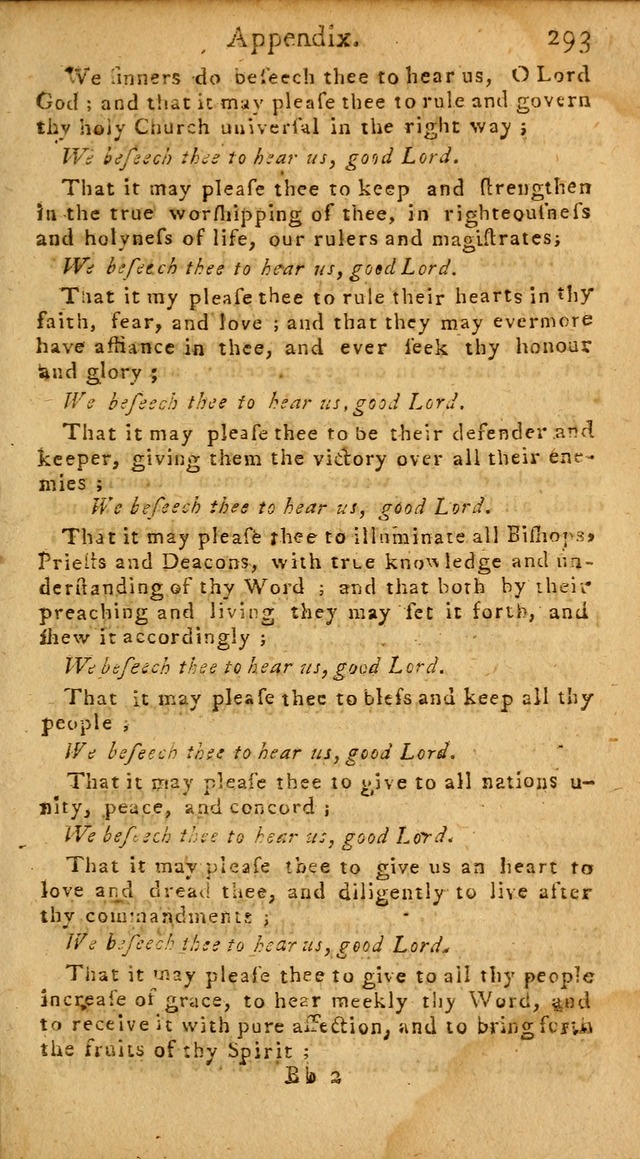 Appendix. 293
We ſinners do beſeech thee to hear us, O Lord
God ; and that it may pleaſe thee to rule and govern
thy holy Church univerſal in the right way ;
We beſeech thee to hear us, good Lord.
That it may pleaſe thee to keep and ſtrengthen
in the true worſhipping of thee, in righteouſneſs
and holyneſs of life, our rulers and magiſtrates;
We beſeech thee to hear us, good Lord.
That it my pleaſe thee to rule their hearts in thy
faith, fear, and love ; and that they may evermore
have affiance in thee, and ever ſeek thy honour
and glory ;
We beſeech thee to hear us, good Lord.
That it may pleaſe thee to be their defender and
keeper, giving them the victory over all their ene-
mies ;
We beſeech thee to hear us, good Lord.
That it may pleaſe thee to illuminate all Biſhops,
Prieſts and Deacons, with true knowledge and un-
derſtanding of thy Word ; and that both by their
preaching and living they may ſet it forth, and
ſhew it accordingly ;
We beſeech thee to hear us, good Lord.
That it may pleaſe thee to bleſs and keep all thy
people ;
We beſeech thee to hear us, good Lord.
That it may pleaſe thee to give to all nations u-
nity, peace, and concord ;
We beſeech thee to hear us, good Lord.
That it may pleaſe thee to give us an heart to
love and dread thee, and diligently to live after
thy commandments ;
We beſeech thee to hear us, good Lord.
That it may pleaſe thee to give to all thy people
increaſe of grace, to hear meekly thy Word, and
to receive it with pure affection, and to bring forth
the fruits of thy Spirit ;
Bb 2